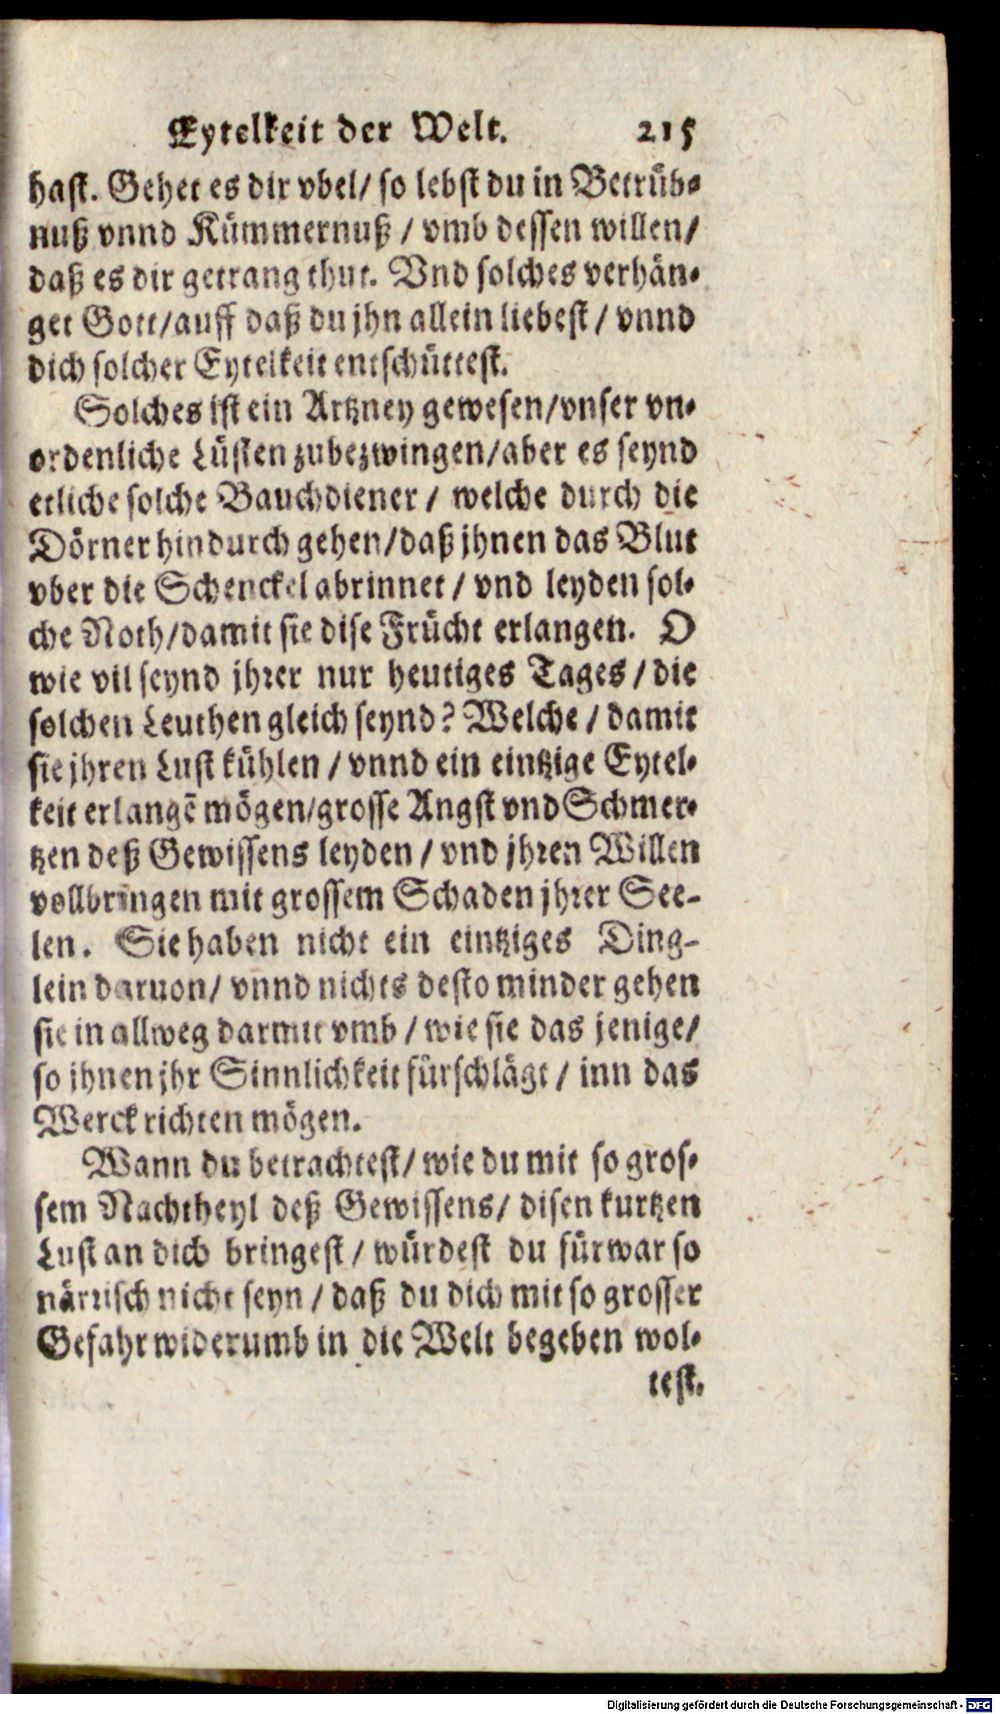 Eytelkeit der Welt. 215
hast. Gehet es dir vbel/ so lebst du in Betrüb-
nuß vnnd Kümmernuß / vmb dessen willen/
daß es dir getrang thut. Vnd solches verhän-
get Gott/auff daß du jhn allein liebest / vnnd
dich solcher Eytelkeit entschüttest.
Solches ist ein Artzney gewesen/vnser vn-
ordenliche Lüsten zubezwingen/aber es seynd
etliche solche Bauchdiener / welche durch die
Dörner hindurch gehen/daß jhnen das Blut
vber die Schenckel abrinnet / vnd leyden sol-
che Noth/damit sie dise Frücht erlangen. O
wie vil seynd jhrer nur heutiges Tages / die
solchen Leuthen gleich seynd? Welche / damit
sie jhren Lust kühlen / vnnd ein eintzige Eytel-
keit erlangē mögen/grosse Angst vnd Schmer-
tzen deß Gewissens leyden / vnd jhren Willen
vollbringen mit grossem Schaden jhrer See-
len. Sie haben nicht ein eintziges Ding-
lein daruon/ vnnd nichts desto minder gehen
sie in allweg darmit vmb / wie sie das jenige/
so jhnen jhr Sinnlichkeit fürschlägt / inn das
Werck richten mögen.
Wann du betrachtest/ wie du mit so gros-
sem Nachtheyl deß Gewissens/ disen kurtzen
Lust an dich bringest / würdest du fürwar so
närrisch nicht seyn / daß du dich mit so grosser
Gefahr widerumb in die Welt begeben wol-
test.
Digitalisierung gefördert durch die Deutsche Forschungsgemeinschaft - DFG